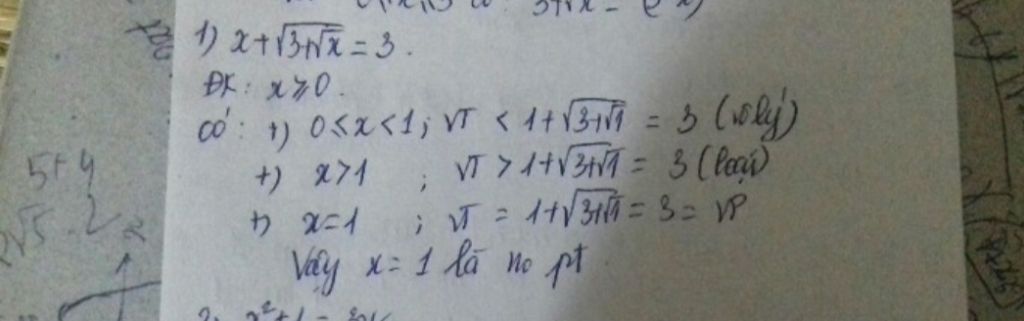 3+√x =
1) x+√(3+√x) = 3.
ĐK: x ⩾ 0.
Có: +) 0 ≤ x < 1; VT < 1+√(3+√1) = 3 (vô lý)
+) x > 1 ; VT > 1+√(3+√1) = 3 (loại)
+) x=1 ; VT = 1+√(3+√1) = 3 = VP
Vậy x = 1 là no pt
5+4
√5 - 2
x²+1 =